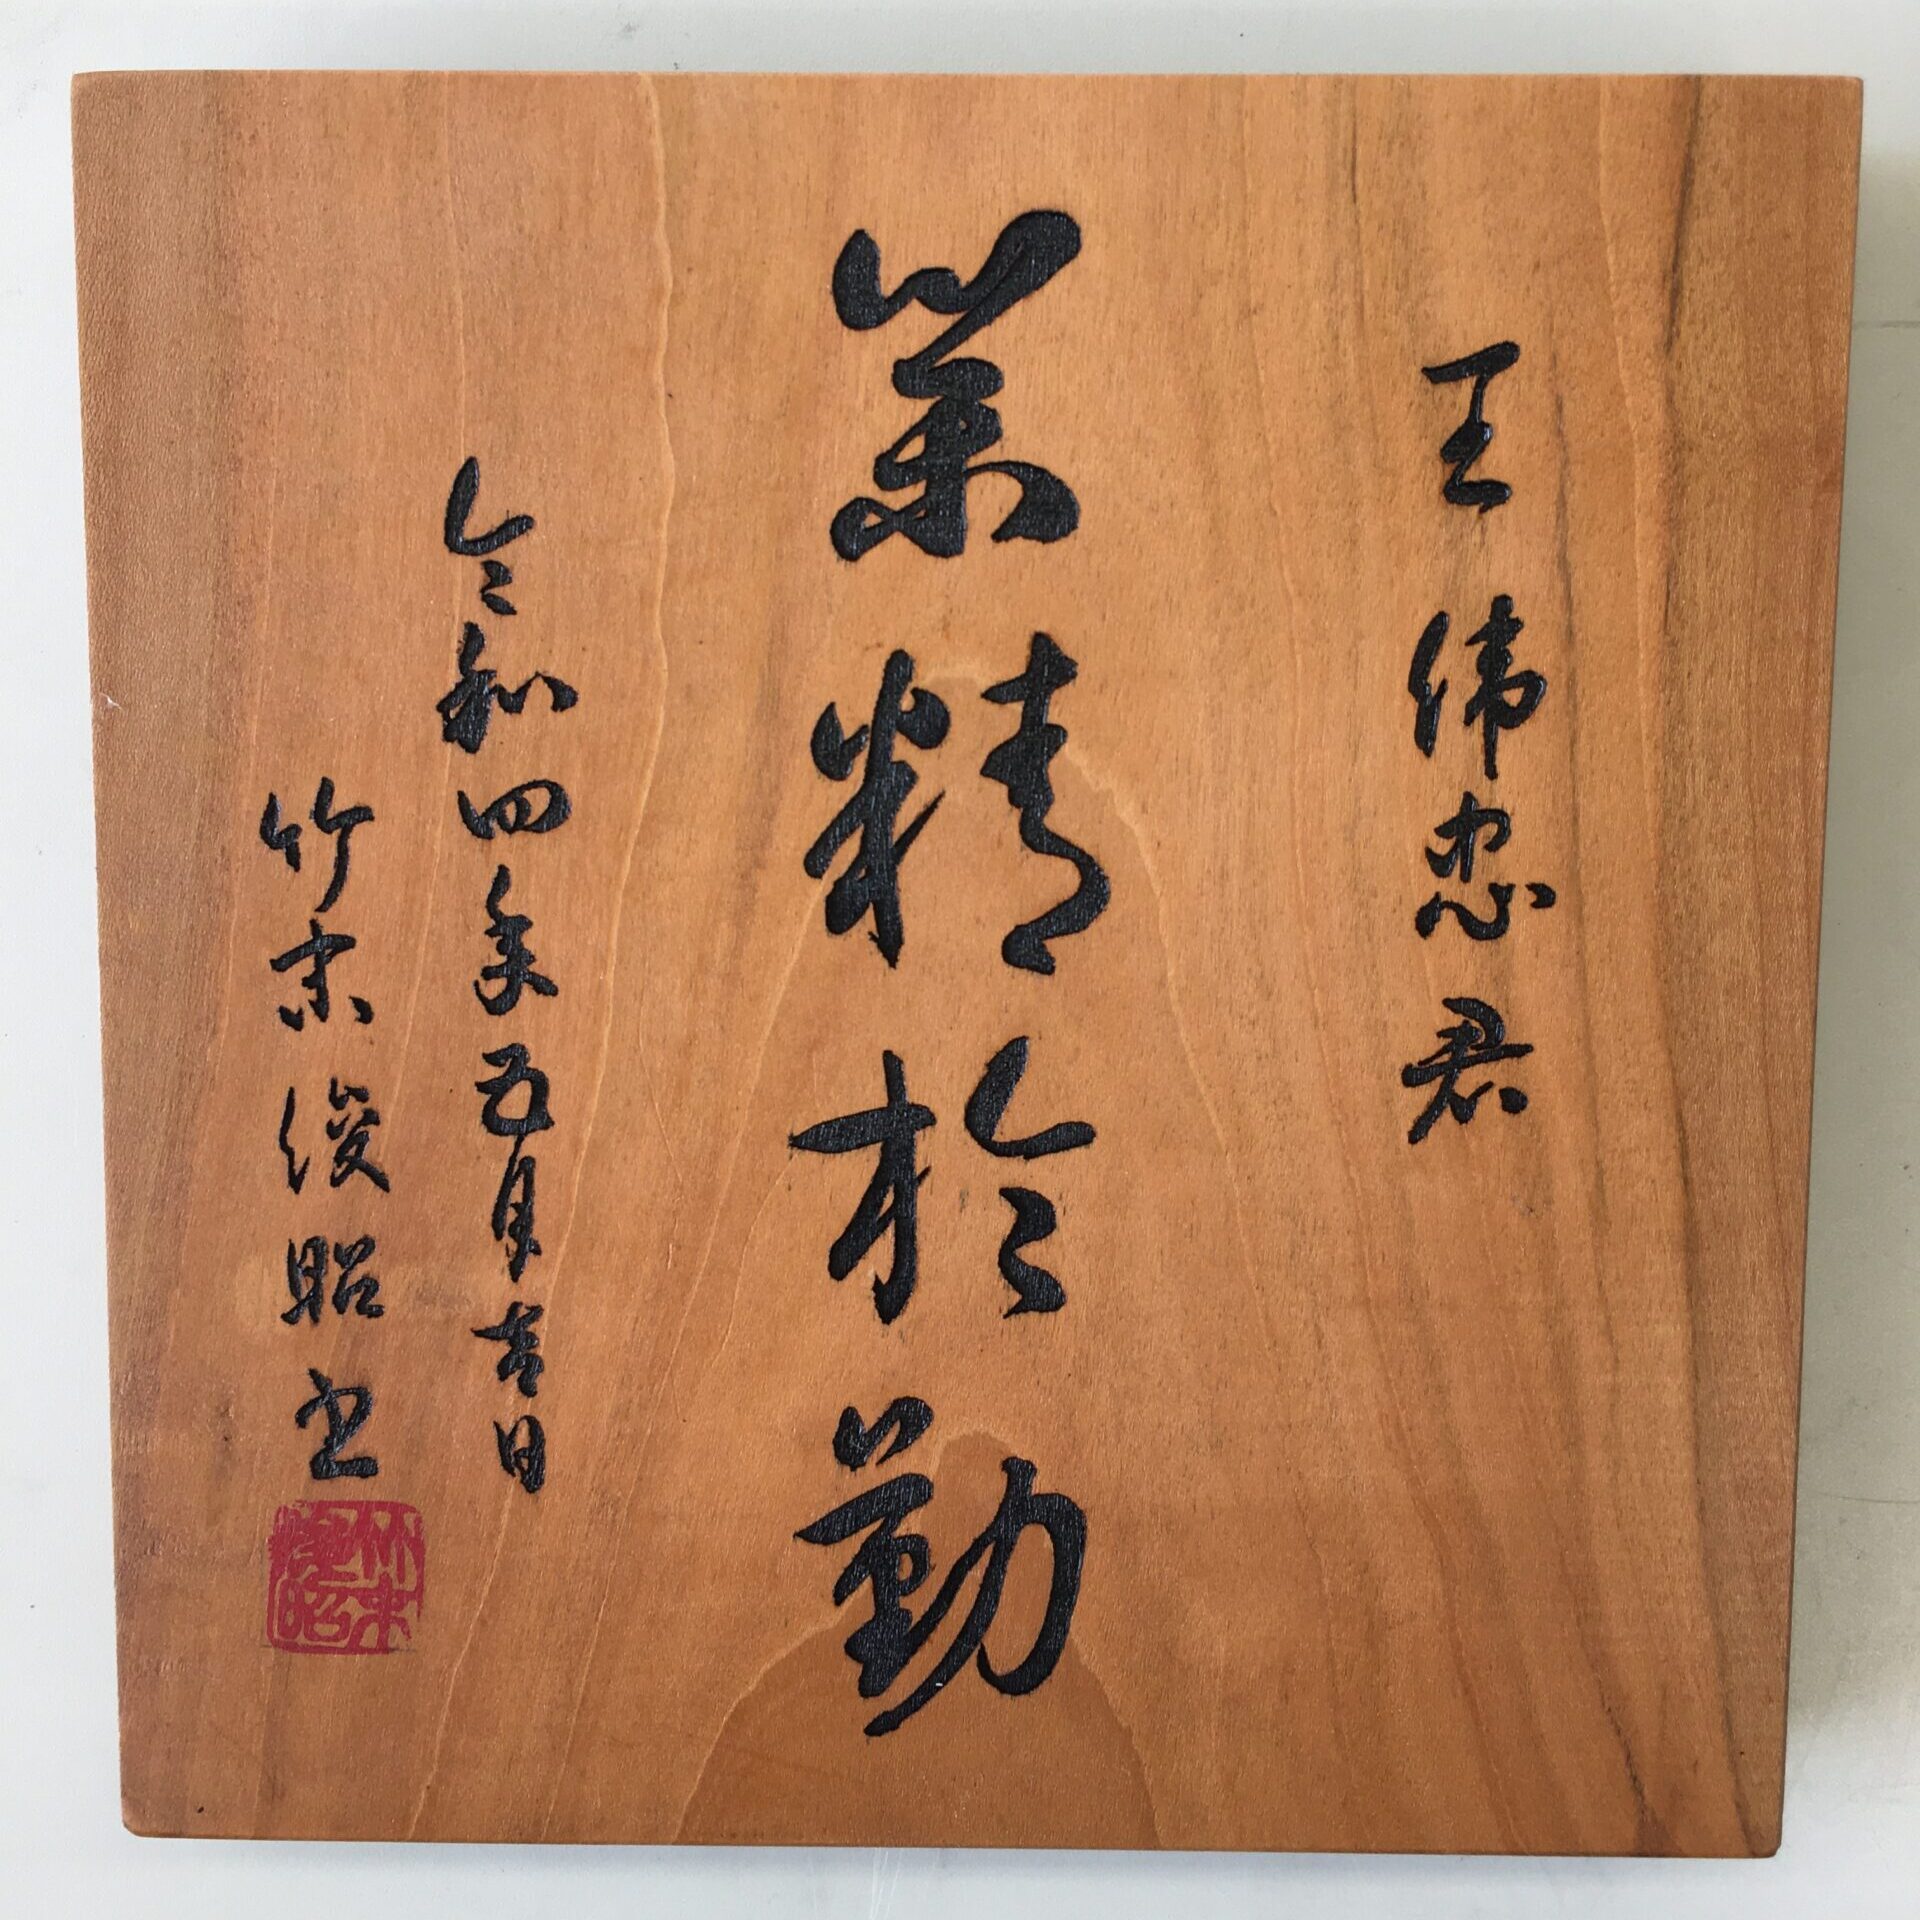 王偉忠君
業精於勤
令和四年五月吉日
竹末俊昭書
竹末俊昭